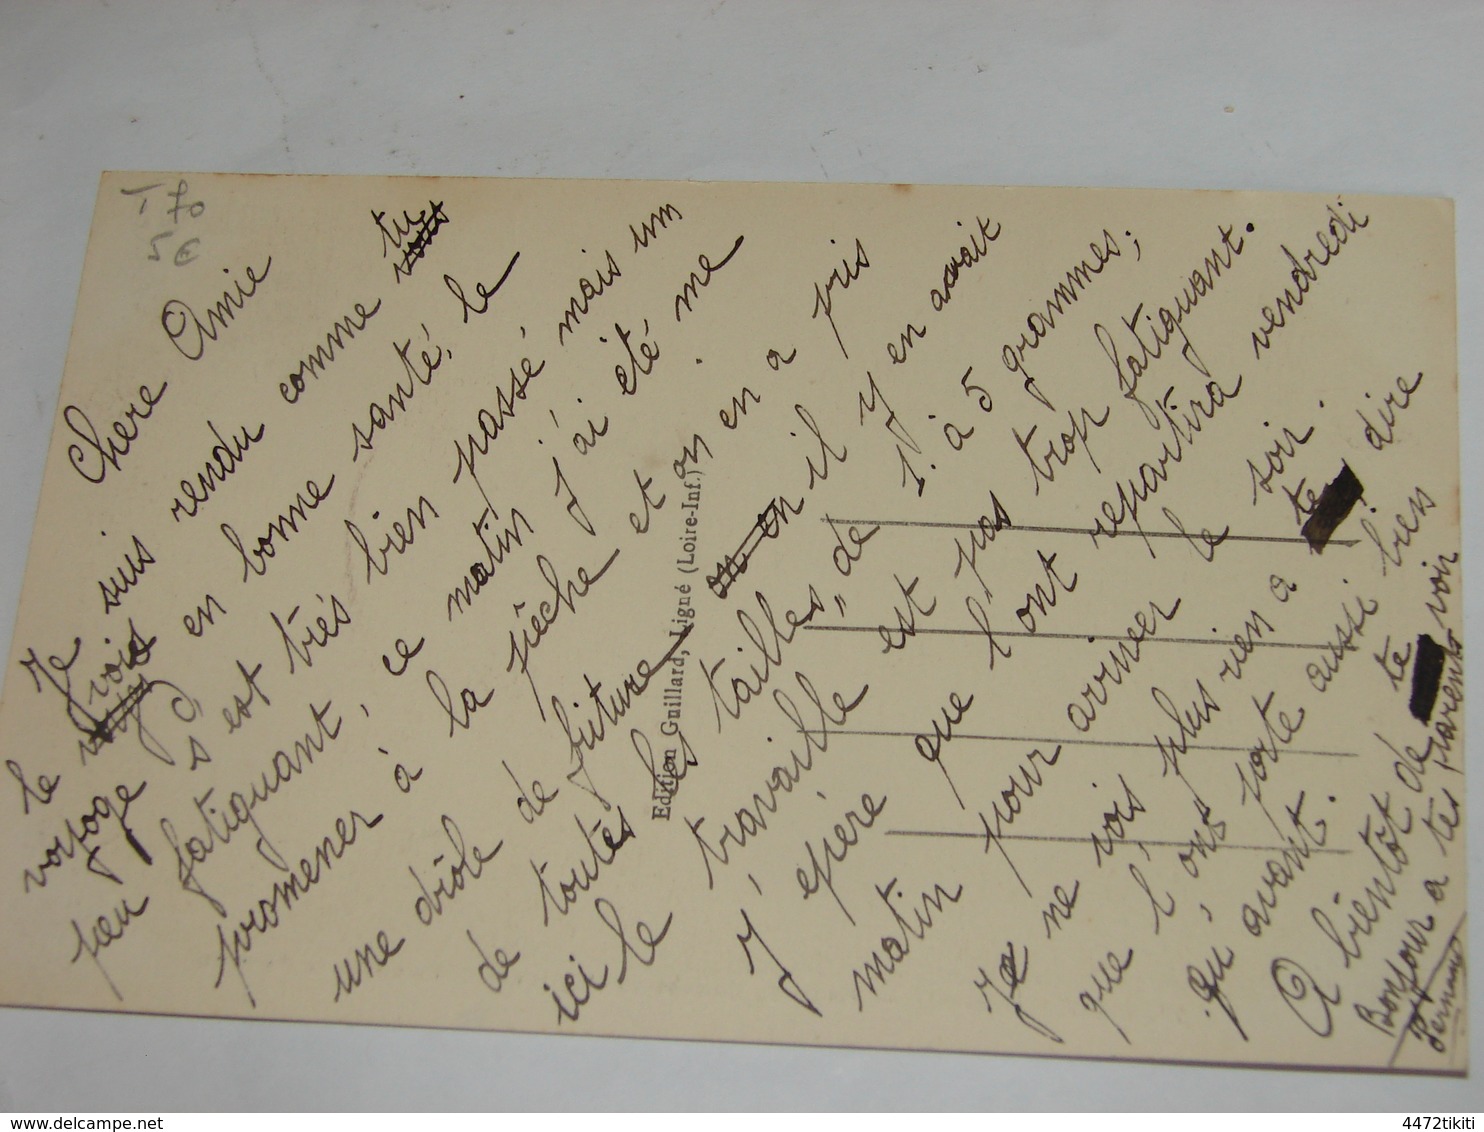 Chere Amie
Je suis rendu comme tu
le vois en bonne santé, le
voyage s'est trés bien passé mais un
peu fatiguant, ce matin j'ai été me
promener à la pêche et on en a pris
une drôle de friture
de toutes les tailles, il y en avait
ici de 1 à 5 grammes;
le travaille est pas trop fatiguant.
J'epère que l'ont repartira vendredi
matin pour arriver le soir.
Je ne vois plus rien a te dire
que l'ons porte aussi bien
qu'avant.
A bientôt de te voir
Bonjour a tes parents
Fernand
Edition Guillard, Ligné (Loire-Inf.)
70
5 €
delcampe.net
4472tikiti